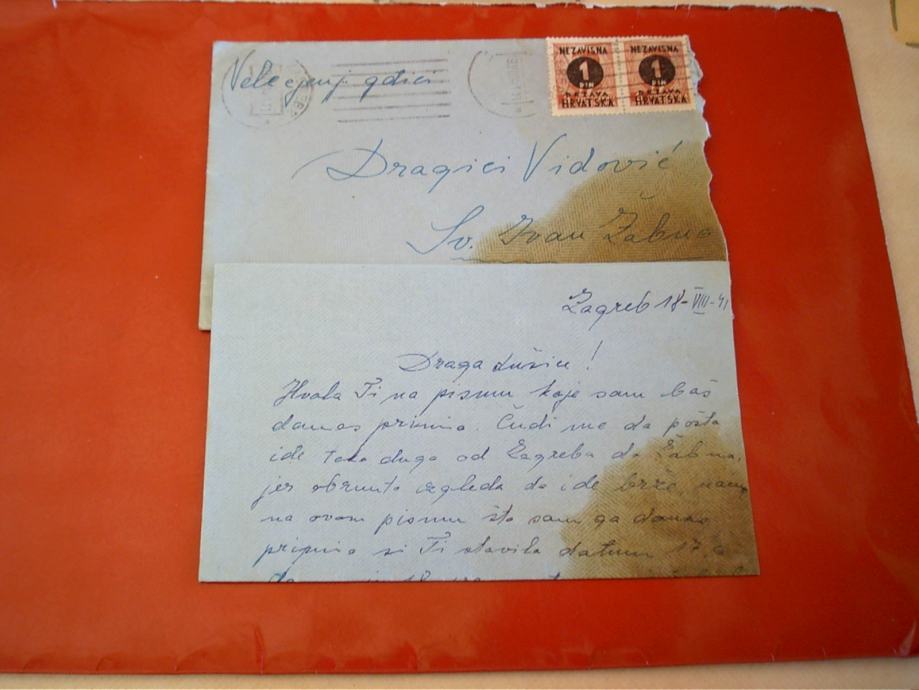 NEZAVISNA
1
DIN
DRŽAVA
HRVATSKA
NEZAVISNA
1
DIN
DRŽAVA
HRVATSKA
Velecjenj. gdici
Dragici Vidović
Sv. Ivan Žabno
Zagreb 18-VIII-41
Draga dušice!
Hvala Ti na pismu koje sam baš
danas primio. Čudi me da pošta
ide tako dugo od Zagreba do Žabna,
jer obrnuto izgleda da ide brže,
na ovom pismu što sam ga danas
primio si Ti stavila datum 17. a